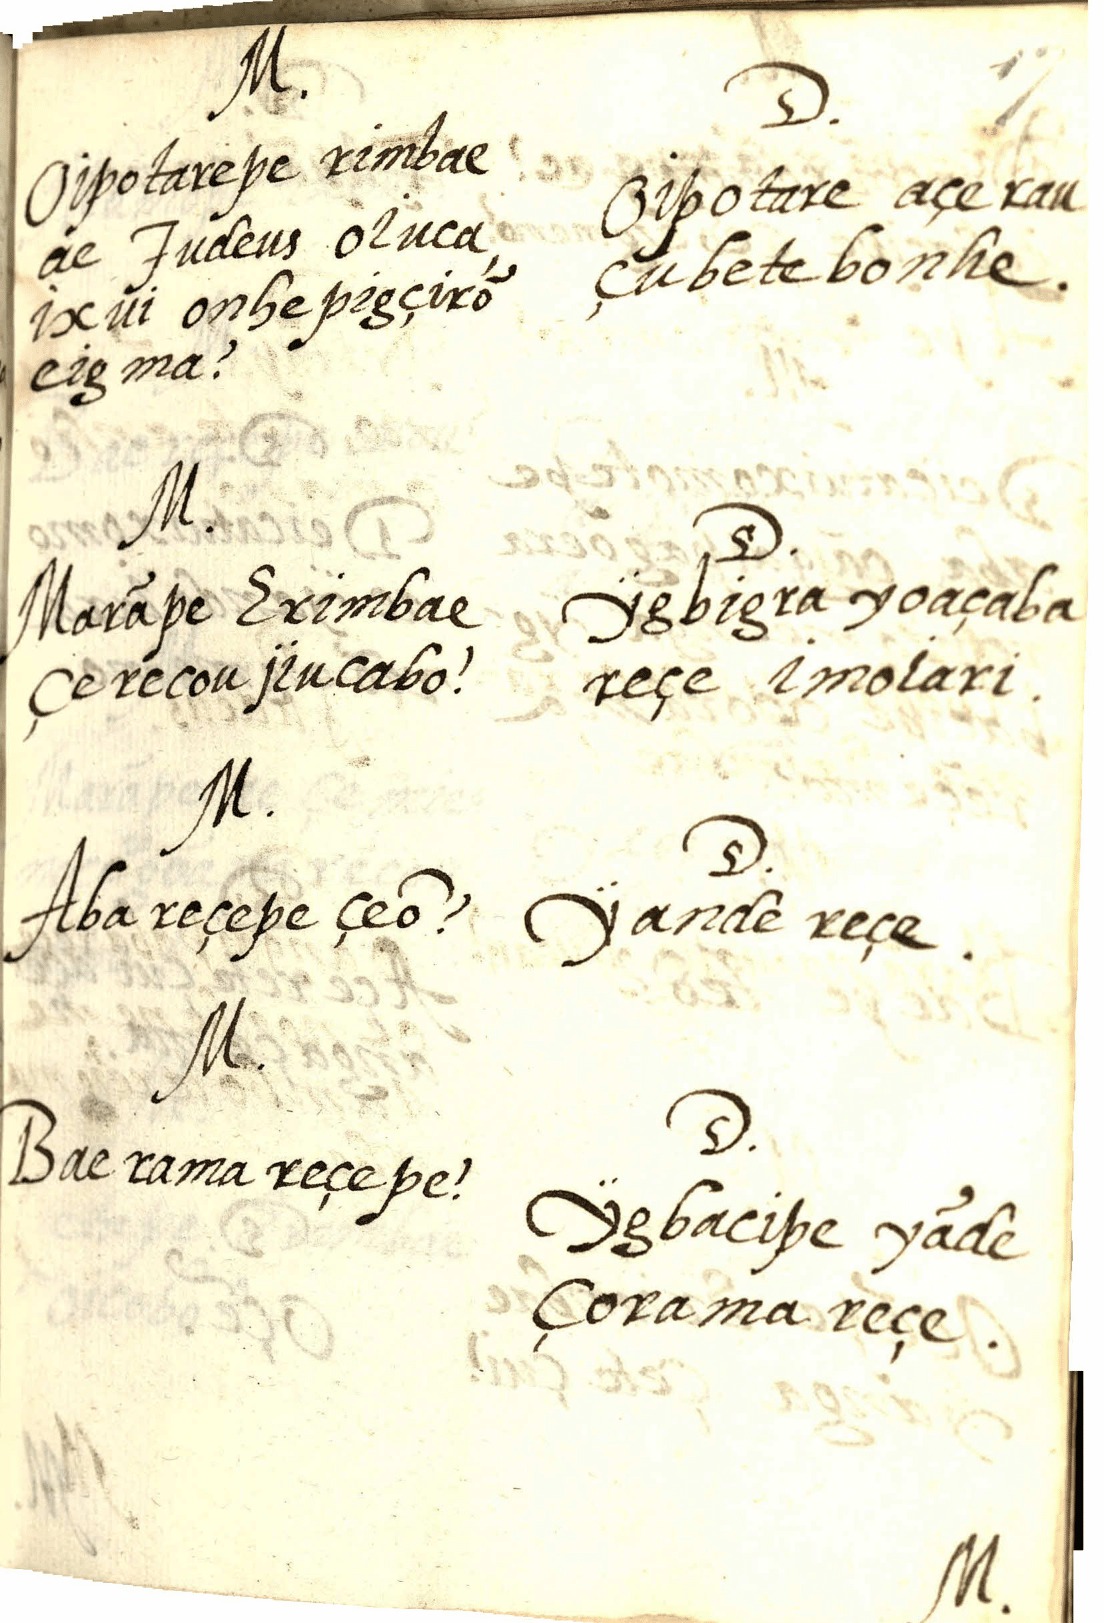 17
M.
Oipotarepe rimbae
ae Judeus oiuca,
ixui onhepigçirõ
eigma?
D.
Oipotare açe rau
çubete bonhe.
M.
Marãpe Erimbae
çerecou jïucabo?
D.
Ÿgbigra yoaçaba
reçe imoiari.
M.
Aba reçepe çeõ?
D.
Ÿandê reçe.
M.
Bae rama reçepe?
D.
Ÿgbacipe yãdê
çorama reçe.
M.